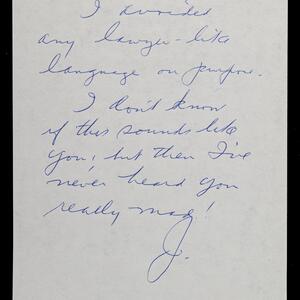 I avoided
any lawyer-like
language on purpose.
I don't know
if this sounds like
you, but then I've
never heard you
really mad!
J.